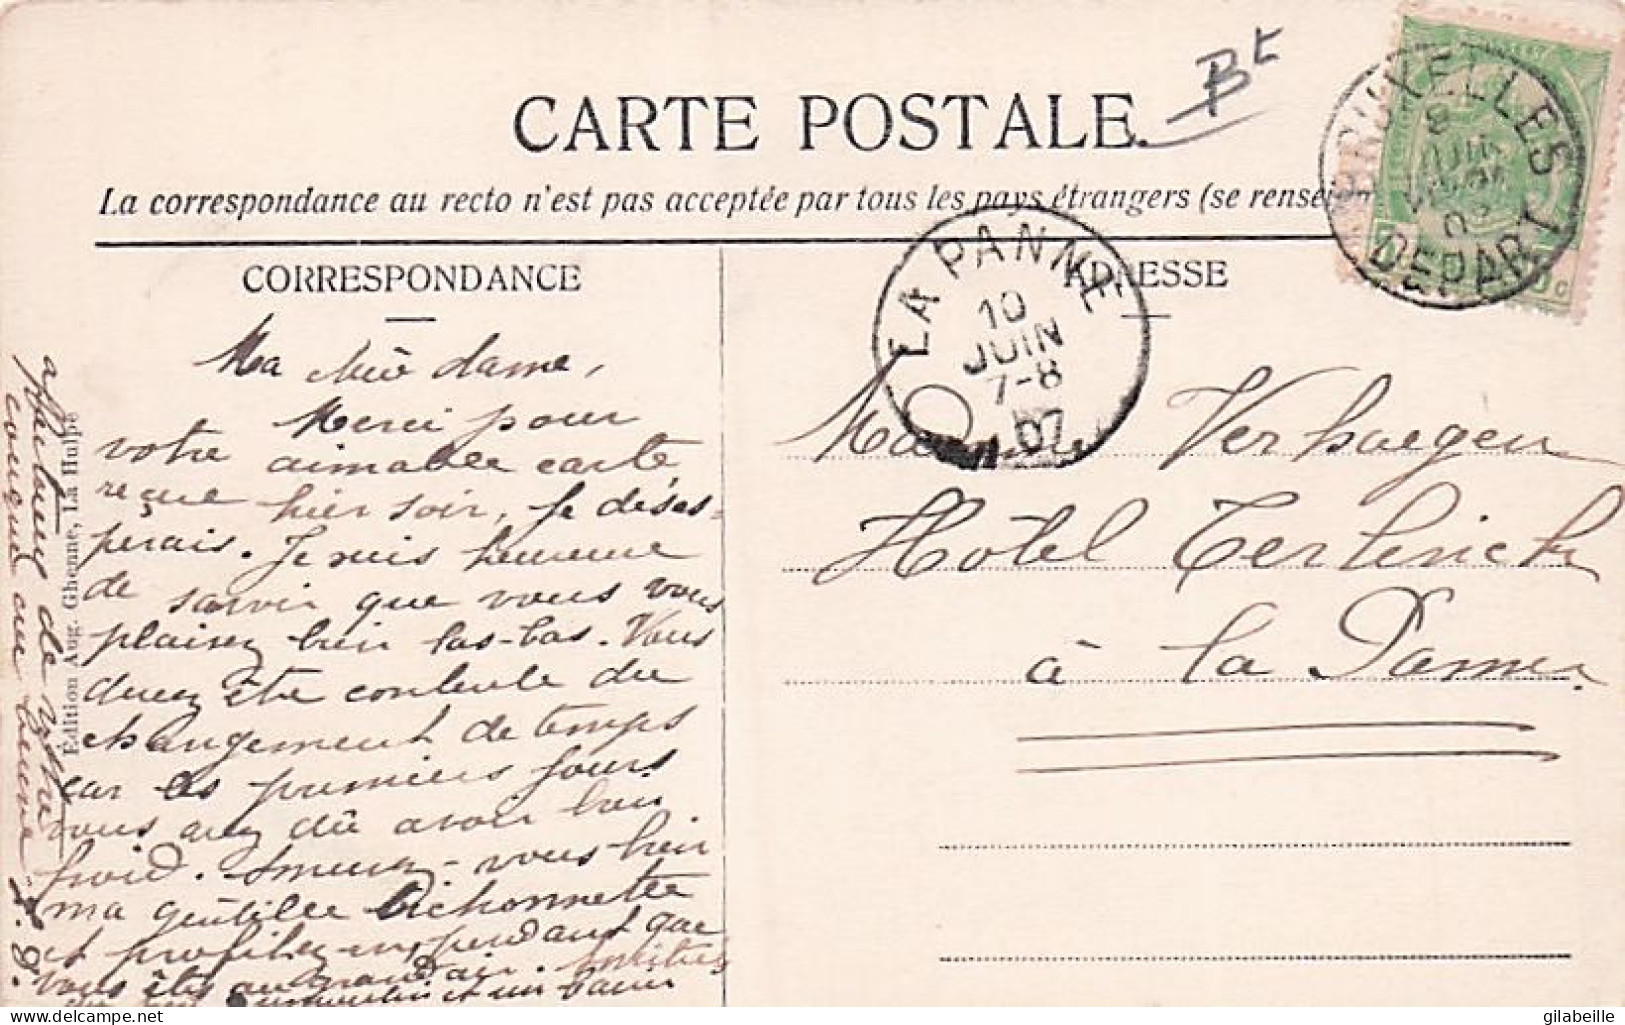 CARTE POSTALE.
Bt
La correspondance au recto n'est pas acceptée par tous les pays étrangers (se rensei
BRUXELLES
8
JUIN
07
DEPART
LA PANNE
10
JUIN
7-8
07
CORRESPONDANCE
Ma dame,
Merci pour
votre aimable carte
reçue hier soir, je déses-
perais. Je suis heureuse
de savoir que vous vous
plaisez bien las-bas. Vous
devez être contente du
changement de temps
car les premiers jours
vous avez dû avoir bien
froid. Amusez-vous bien
ma gentille Bichonnette
et profitez-en, pendant que
vous êtes au grand air.
et un baiser
affectueux de votre
Edition Aug. Ghenne, La Hulpe
ADRESSE
Madame Verhaegen
Hotel Terlinck
à la Panne
delcampe.net
gilabeille